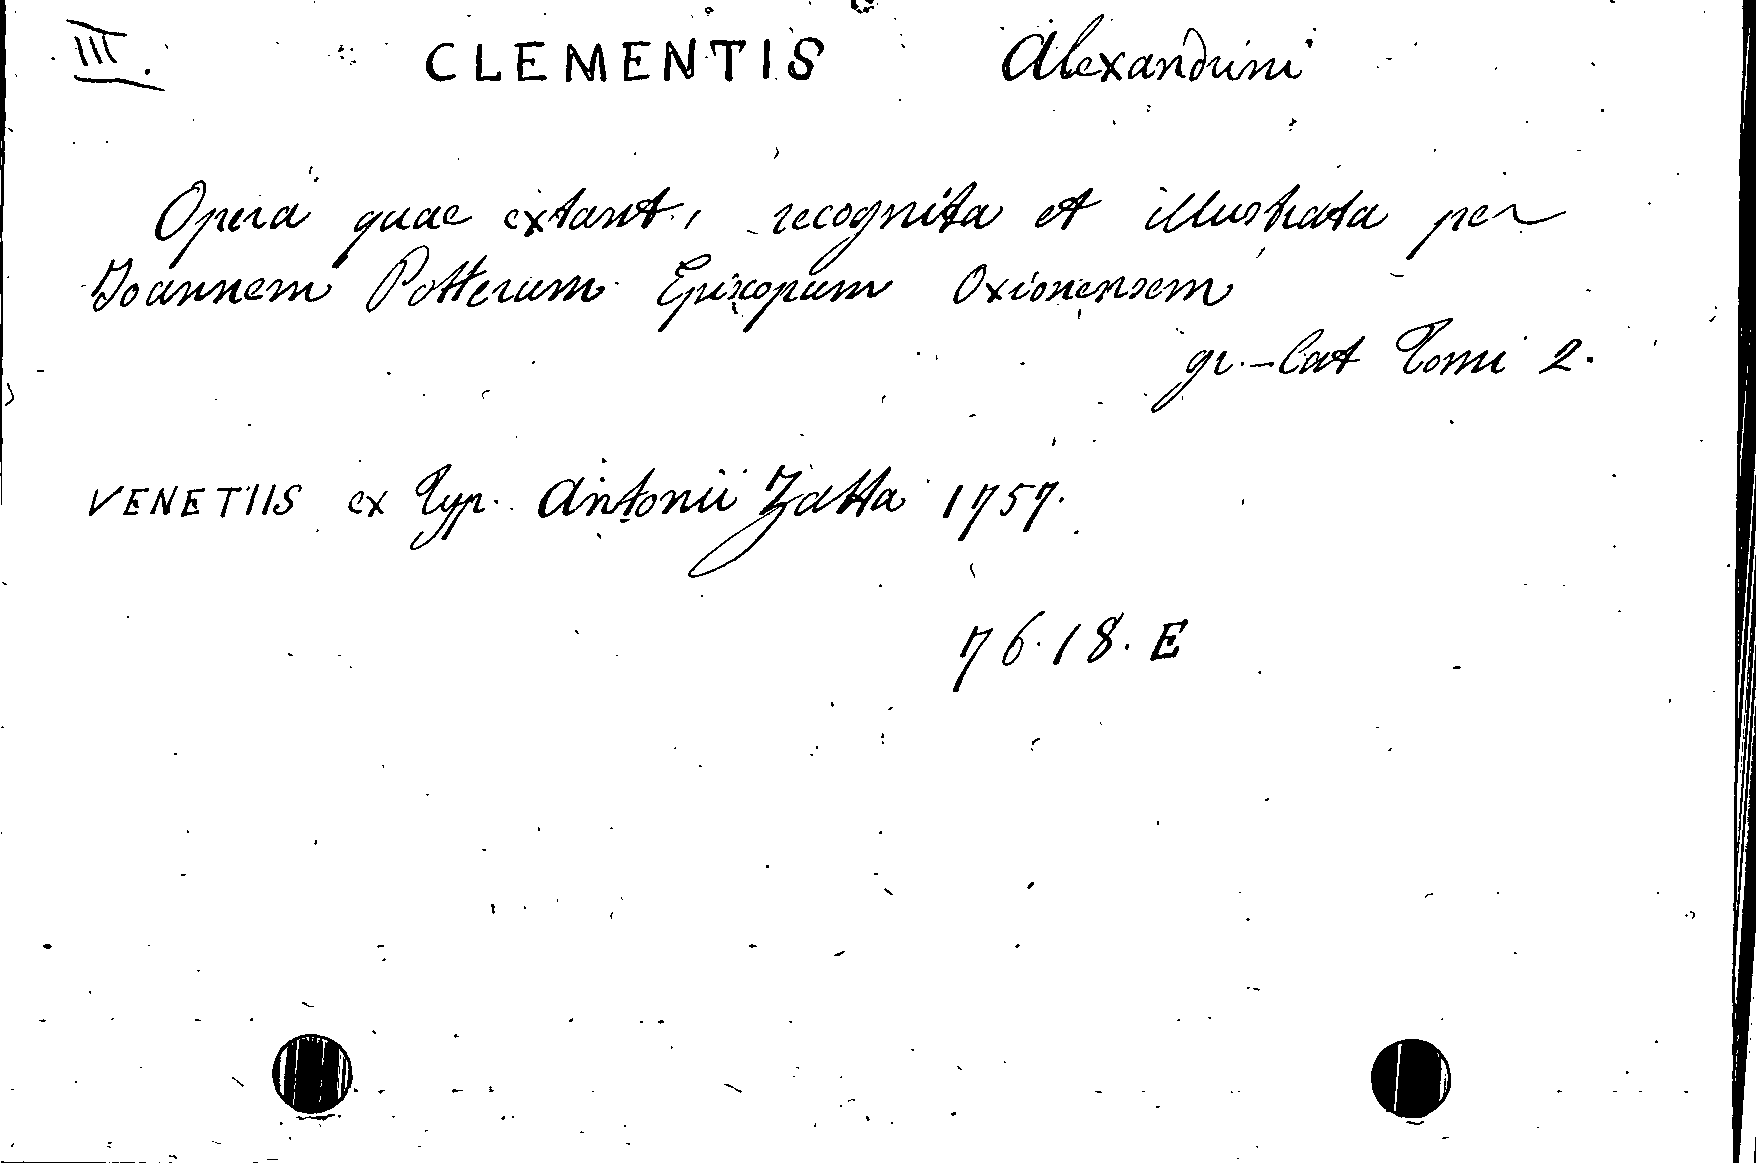 III. CLEMENTIS Alexandrini
Opera quae extant, recognita et illustrata per
Joannem Potterum Episcopum Oxionensem
gr.-lat Tomi 2.
VENETIIS ex Typ. Antonii Zatta 1757.
76.18.E